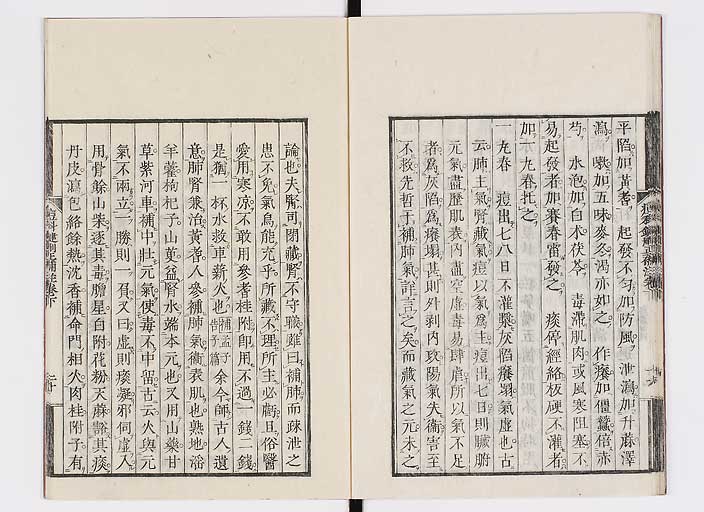 平陷加黃耆 起發不勻加防風 泄瀉加升麻澤
瀉 嗽加五味麥冬渴亦如之 作癢加僵蠶倍赤
芍 水泡加白朮茯苓 毒滯肌肉或風寒阻塞不
易起發者加賽春雷發之 痰停經絡板硬不灌者
加一九春托之
一九春 痘出七八日不灌漿灰陷癢塌氣虛也古
云肺主氣腎藏氣痘以氣爲主痘出七日則臟腑
元氣盡歷肌表內盡空虛毒易肆虐所以氣不足
者爲灰陷爲癢塌甚則外剥內攻陽氣失衞害至
不救先哲于補肺氣詳言之矣而藏氣之元未之
論也夫腎司閉藏腎不守職雖曰補肺而疎泄之
患不免氣烏能充乎所藏不理所主必虧且俗醫
愛用寒凉不敢用參耆桂附卽用不過一錢二錢
是猶一杯水救車薪火也 余今師古人遺
意肺腎兼治黃耆人參補肺氣衞表肌也熟地淫
羊藿枸杞子山萸益腎水端本元也又用山藥甘
草紫河車補中壯元氣使毒不中留古云火與元
氣不兩立一勝則一負又曰虛則痰凝邪伺虛入
用骨餘山柴逐其毒膽星白附花粉天麻豁其痰
丹皮瀉包絡餘熱沈香補命門相火肉桂附子有